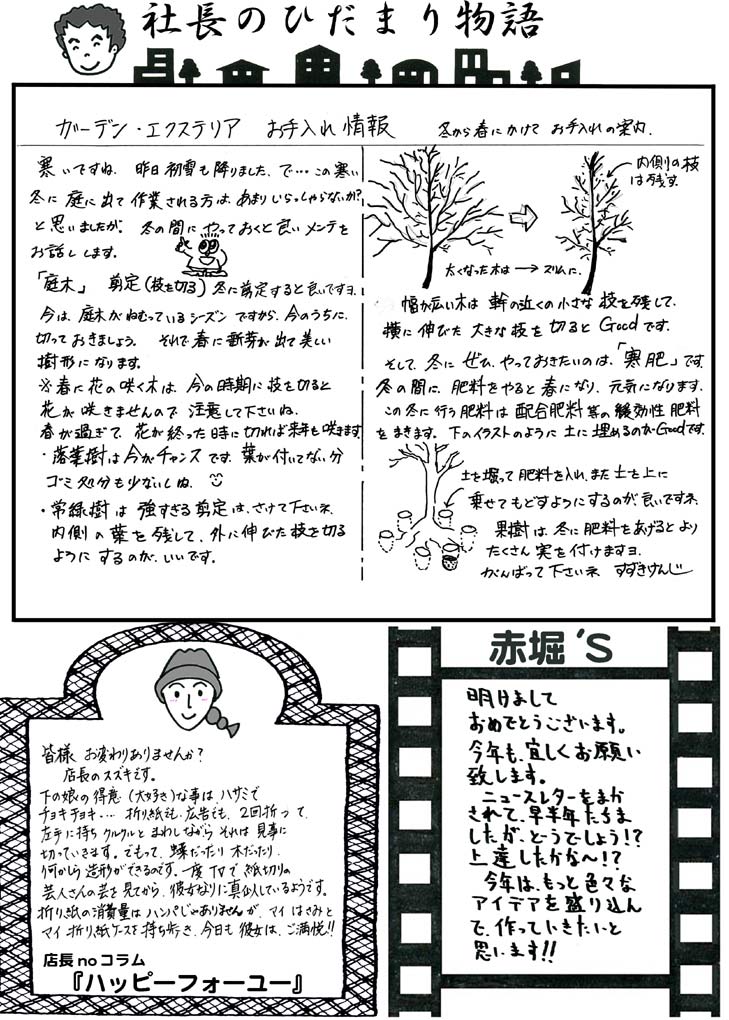 社長のひだまり物語
ガーデン・エクステリア お手入れ情報 冬から春にかけて お手入れの案内.
寒いですね. 昨日初雪も降りました、で…この寒い
冬に 庭に出て作業される方は、あまりいらっしゃらないか?
と思いましたが. 冬の間に やっておくと良いメンテを
お話しします。
「庭木」 剪定(枝を切る) 冬に剪定すると良いですヨ.
今は、庭木がねむっているシーズンですから、今のうちに、
切っておきましょう。 それで春に新芽が出て美しい
樹形になります。
※春に花の咲く木は、今の時期に枝を切ると
花が咲きませんので注意して下さいね.
春が過ぎて、花が終った時に切れば来年も咲きます
・落葉樹は今がチャンスです. 葉が付いてない分
ゴミ処分も少ないしね.
・常緑樹は 強すぎる剪定は、さけて下さいネ.
内側の葉を残して、外に伸びた枝を切る
ようにするのが、いいです。
内側の枝
は残す.
太くなった木は → スリムに.
幅が広い木は 幹の近くの小さな枝を残して、
横に伸びた大きな枝を切ると Goodです.
そして、冬にぜひ、やっておきたいのは、「寒肥」です
冬の間に、肥料をやると春になり、元気になります.
この冬に行う肥料は 配合肥料等の緩効性肥料
をまきます. 下のイラストのように土に埋めるのがGoodです.
土を堀って肥料を入れ、また土を上に
乗せてもどすようにするのが良いですネ.
果樹は、冬に肥料をあげるとより
たくさん実を付けますヨ.
がんばって下さいネ すずきけんじ
皆様 お変わりありませんか?
店長のスズキです。
下の娘の得意(大好き)な事は、ハサミで
チョキチョキ… 折り紙でも、広告でも、2回折って、
左手に持ちクルクルとまわしながらそれは見事に
切っていきます。でもって、蝶だったり木だったり、
何かしら造形ができるのです。一度TVで紙切りの
芸人さんの芸を見てから、彼女なりに真似しているようです。
折り紙の消費量はハンパじゃありませんが、マイはさみと
マイ折り紙ケースを持ち歩き、今日も彼女は、ご満悦!!
店長noコラム
『ハッピーフォーユー』
赤堀'S
明けまして
おめでとうございます。
今年も、宜しくお願い
致します。
ニュースレターをまか
されて、早半年たちま
したが、どうでしょう!?
上達したかな〜!?
今年は、もっと色々な
アイデアを盛り込ん
で、作っていきたいと
思います!!